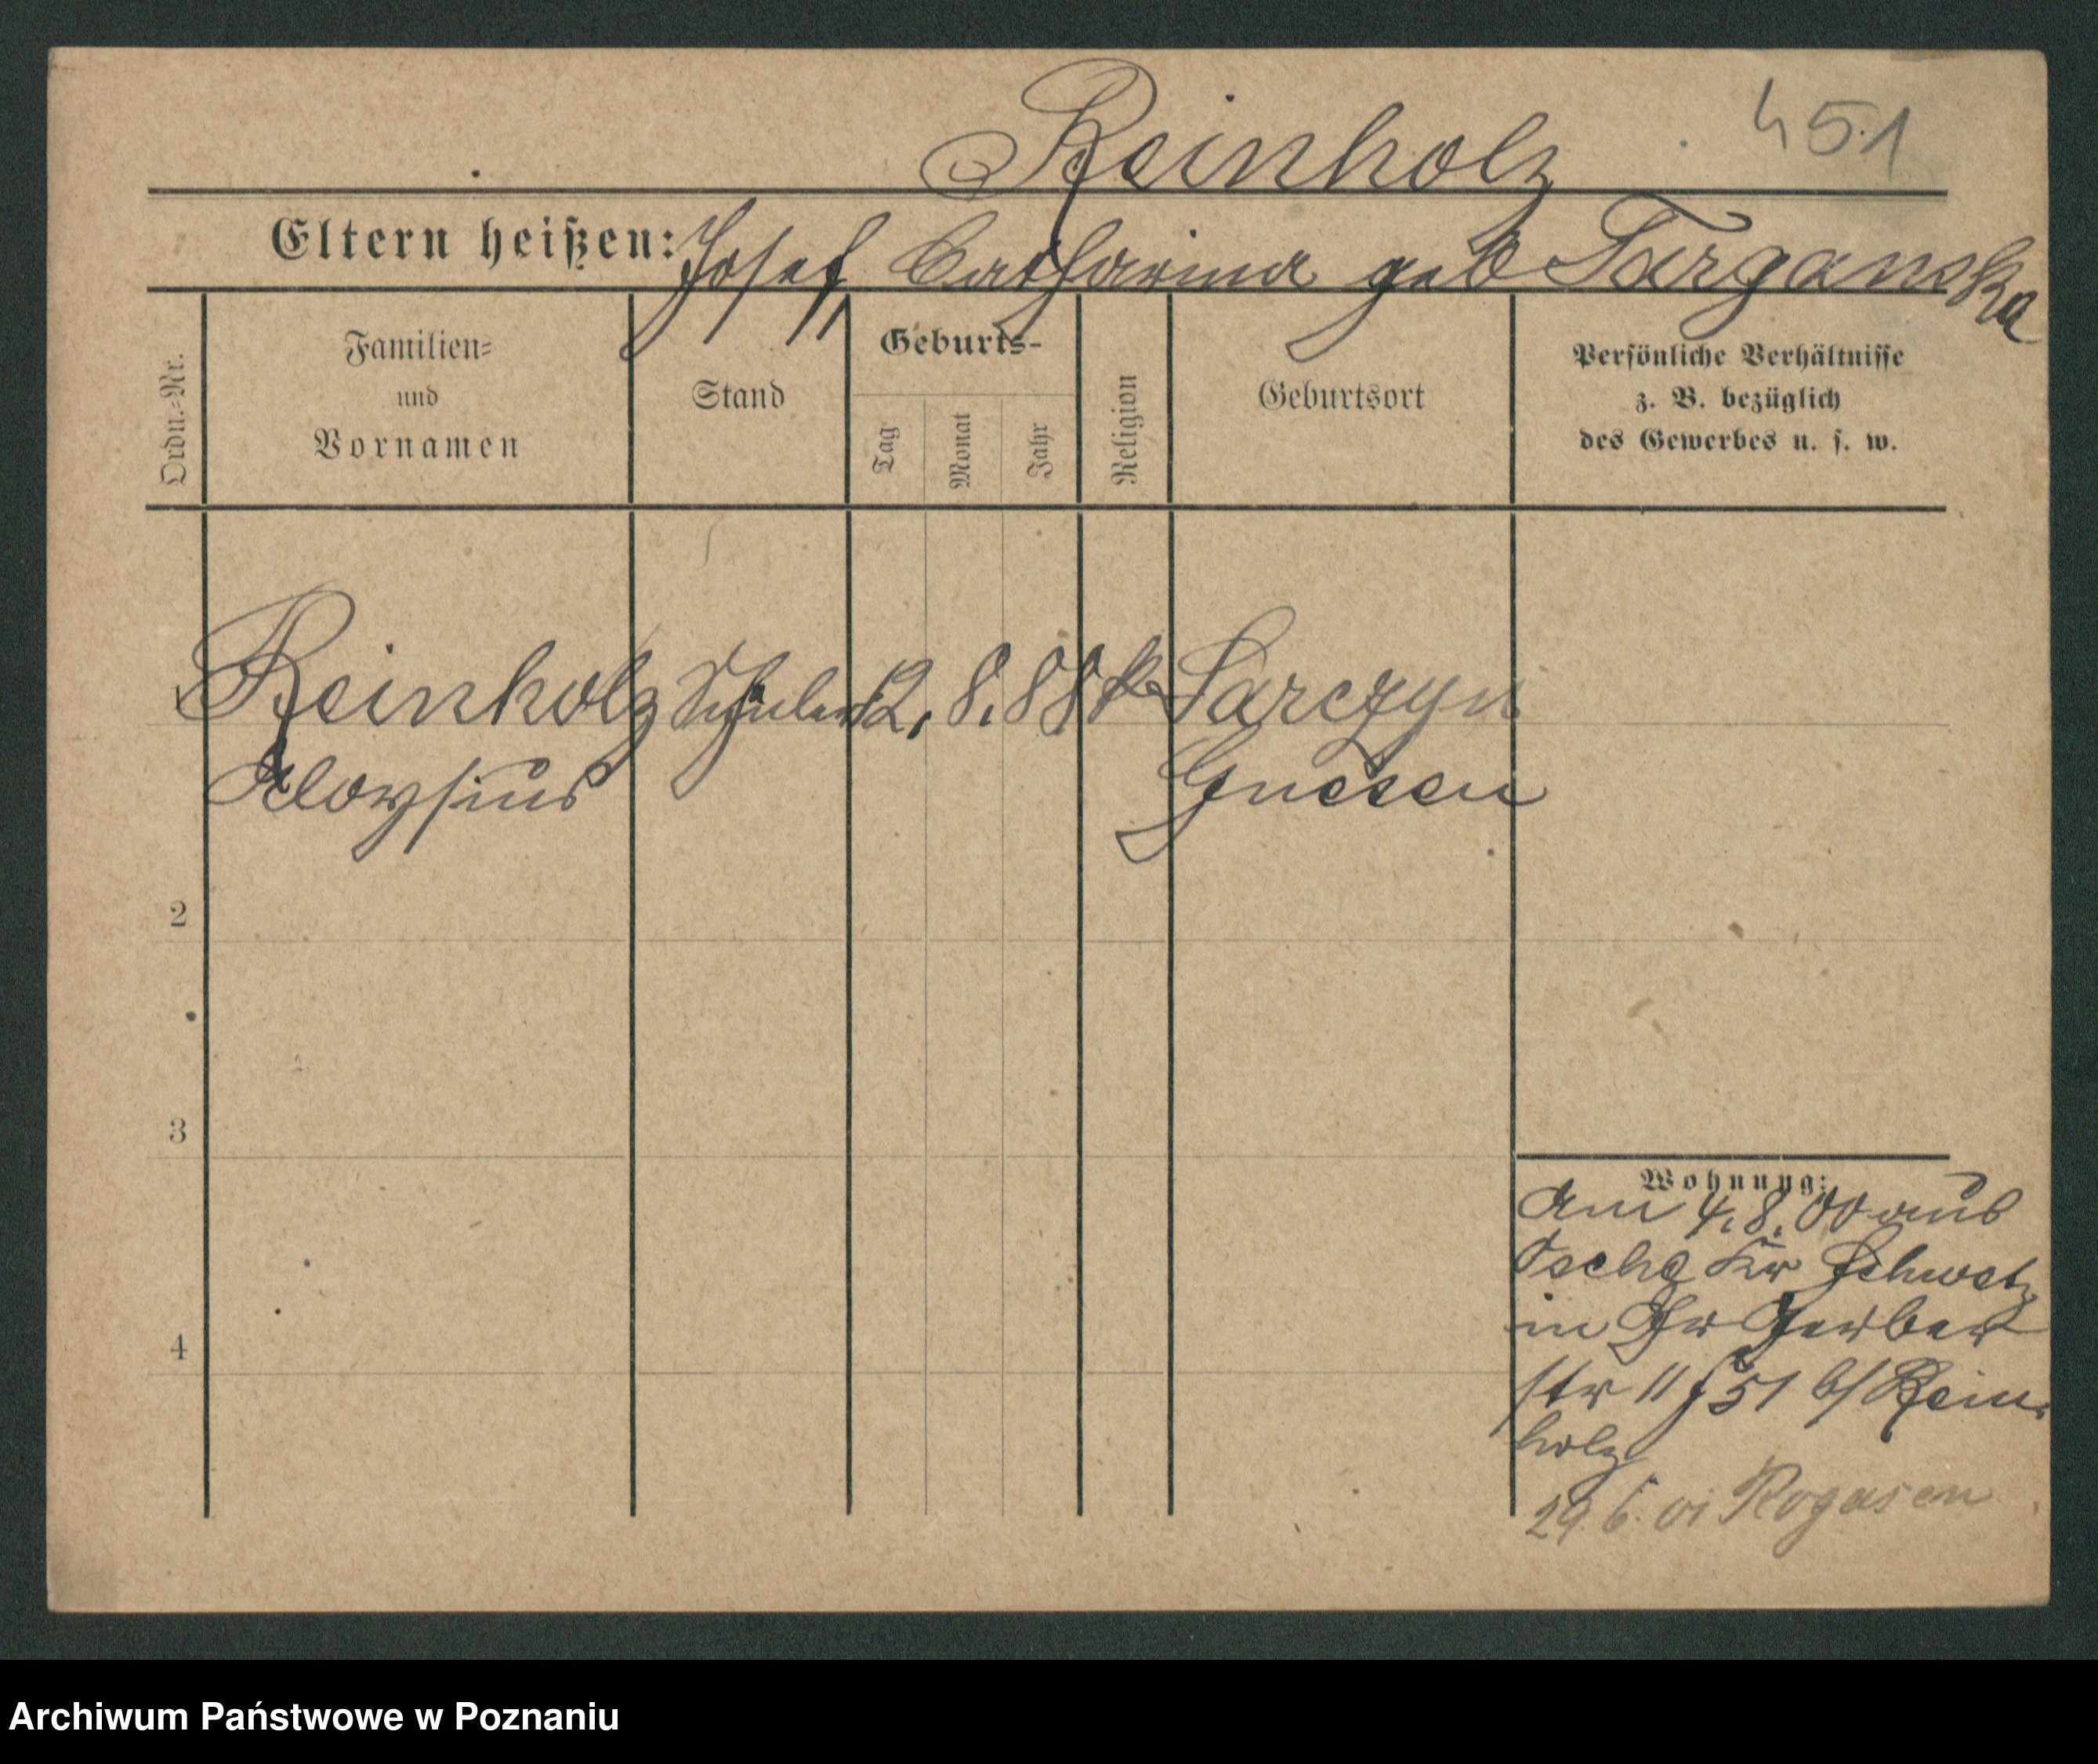 Reinholz
451
Eltern heißen: Josef, Catharina geb Targanska
Ordn.=Nr.
Familien=
und
Vornamen
Stand
Geburts-
Tag
Monat
Jahr
Religion
Geburtsort
Persönliche Verhältnisse
z. B. bezüglich
des Gewerbes u. s. w.
1 Reinholz Schüler 12. 8. 88 k Sarczyn
Aloysius Gnesen
2
3
4
Wohnung:
Am 4. 8. 00 aus
Kr Schwetz
in Gr Gerber
str 11 b/ Rein-
holz
29. 6. 01 Rogasen
Archiwum Państwowe w Poznaniu